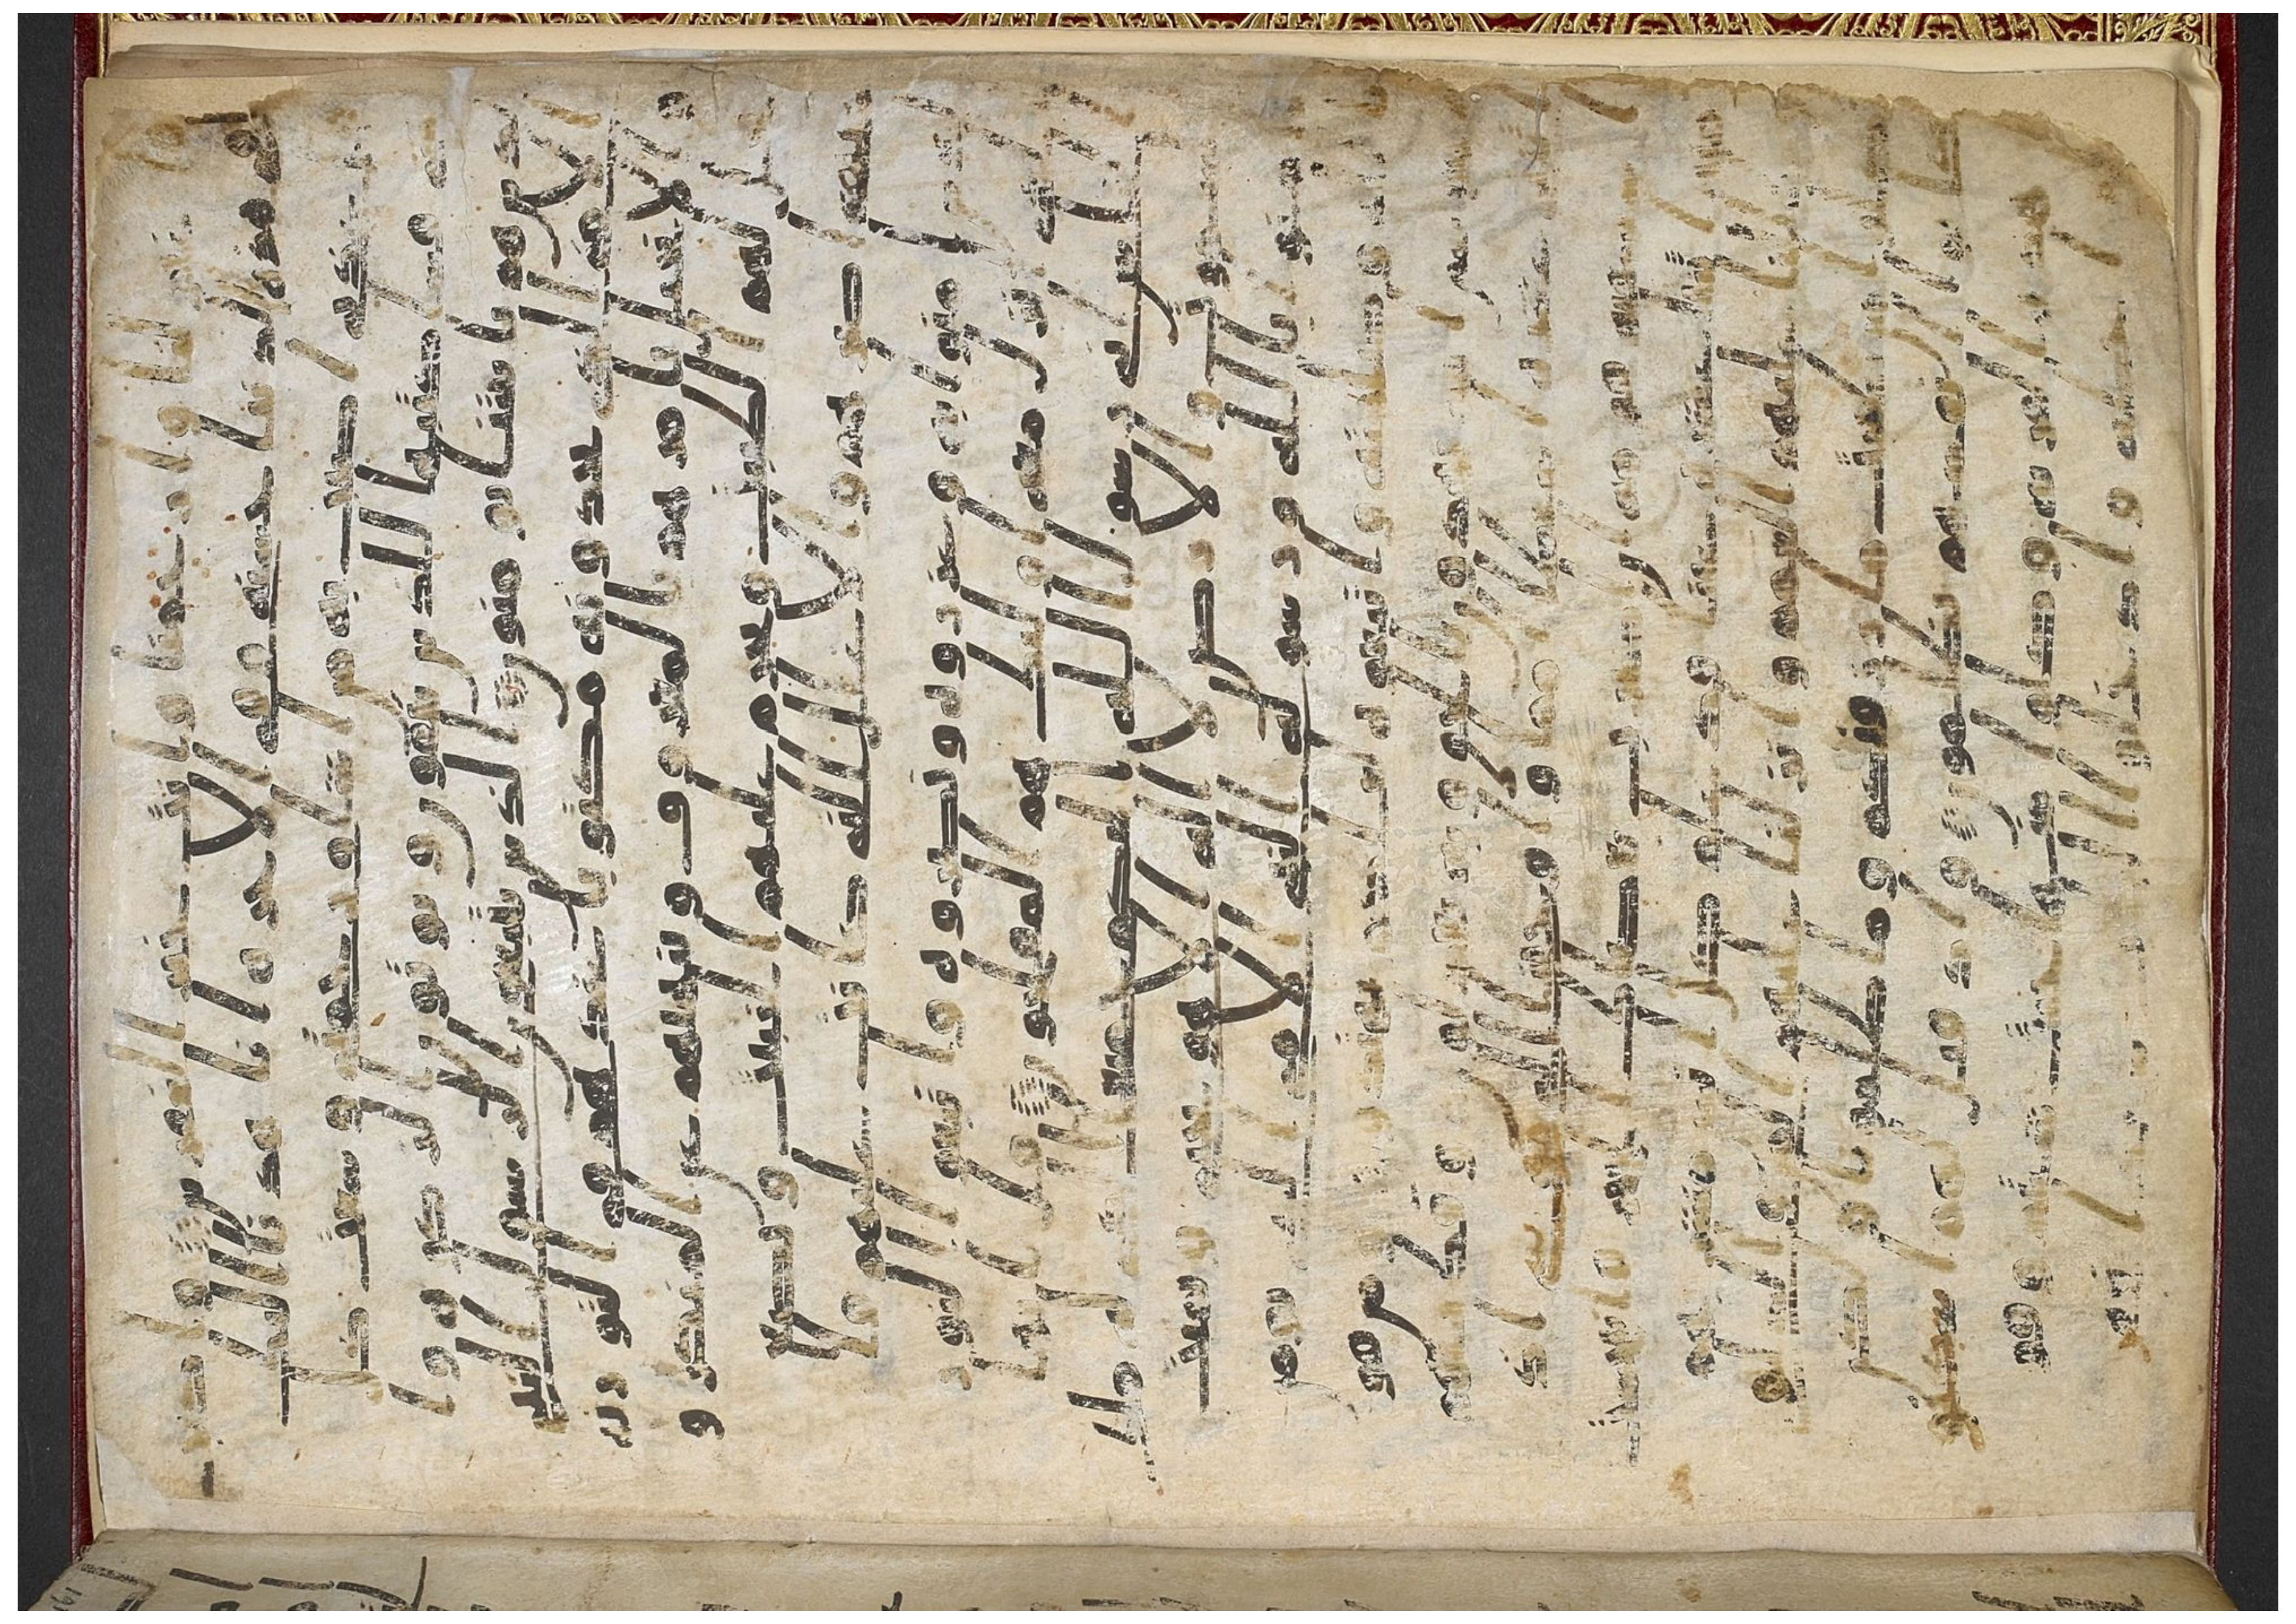 فاغفر لنا وارحمنا وانت خير الغفرين واكتب
لنا في هذه الدنيا حسنه وفي الاخره انا هدنا اليك
قال عذابي اصيب به من اشا ورحمتي وسعت كل
شي فساكتبها للذين يتقون ويوتون الزكوه وا
لذين هم بايتنا يومنون الذين يتبعون الرسول ا
لنبي الامي الذي يجدونه مكتوبا عندهم في التوريه
والانجيل يامرهم بالمعروف وينههم عن المنكر و
يحل لهم الطيبت ويحرم عليهم الخبيث ويضع
عنهم اصرهم والاغلل التي كانت عليهم فا
لذين امنوا به وعزروه ونصروه واتبعوا النور
الذي انزل معه اوليك هم المفلحون قل يايها ا
لناس اني رسول الله اليكم جميعا الذي له ملك
السموت والارض لا اله الا هو يحي ويميت
فامنوا بالله ورسوله النبي الامي الذي يومن
بالله وكلمته واتبعوه لعلكم تهتدون ومن قوم موسي
امه يهدون بالحق وبه يعدلون وقطعنهم
اثنتي عشره اسباطا امما واوحينا الي موسي اذ
استسقيه قومه ان اضرب بعصاك الحجر فانبجست
منه اثنتا عشره عينا قد علم كل اناس مشربهم
وظللنا عليهم الغمم وانزلنا عليهم المن والسلوي
كلوا من طيبت ما رزقنكم وما ظلمونا ولكن
كانوا انفسهم يظلمون واذ قيل لهم اسكنوا
هذه القريه وكلوا منها حيث شيتم وقولوا
حطه وادخلوا الباب سجدا نغفر